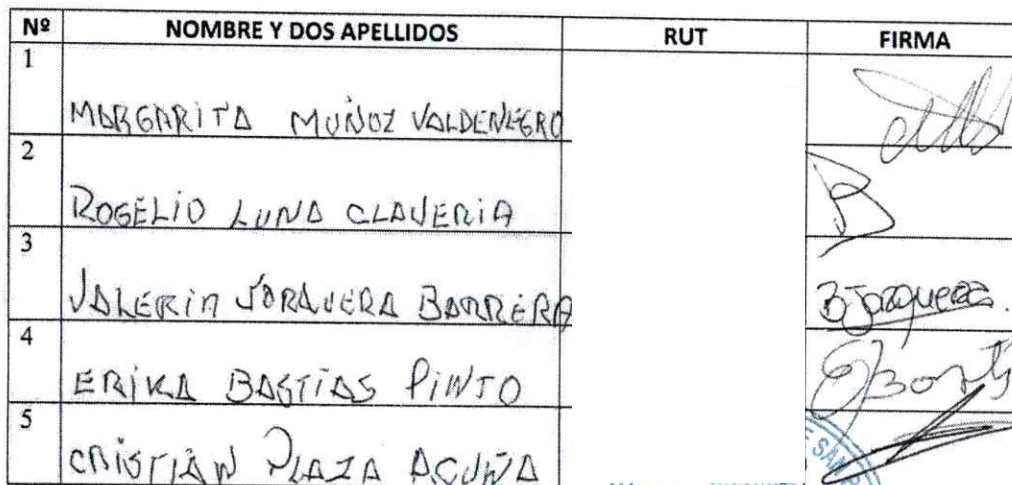 Nº NOMBRE Y DOS APELLIDOS RUT FIRMA
1
MARGARITA MUÑOZ VALDENEGRO
2
ROGELIO LUNA CLAVERIA
3
VALERIA JORQUERA BARRERA BJorquera.
4
ERIKA BASTÍAS PINTO
5
CRISTIÁN PLAZA ACUÑA